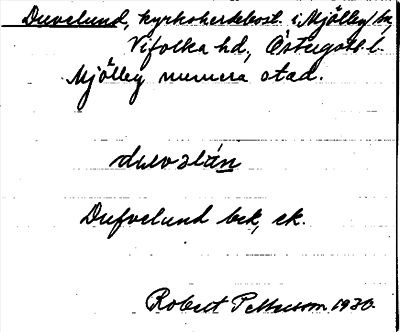 Duvelund, kyrkoherdebost. i Mjölby sn,
Vifolka hd, Östergötl. l.
Mjölby numera stad.
Dufvelund bek, ek.
Robert Pettersson 1930.